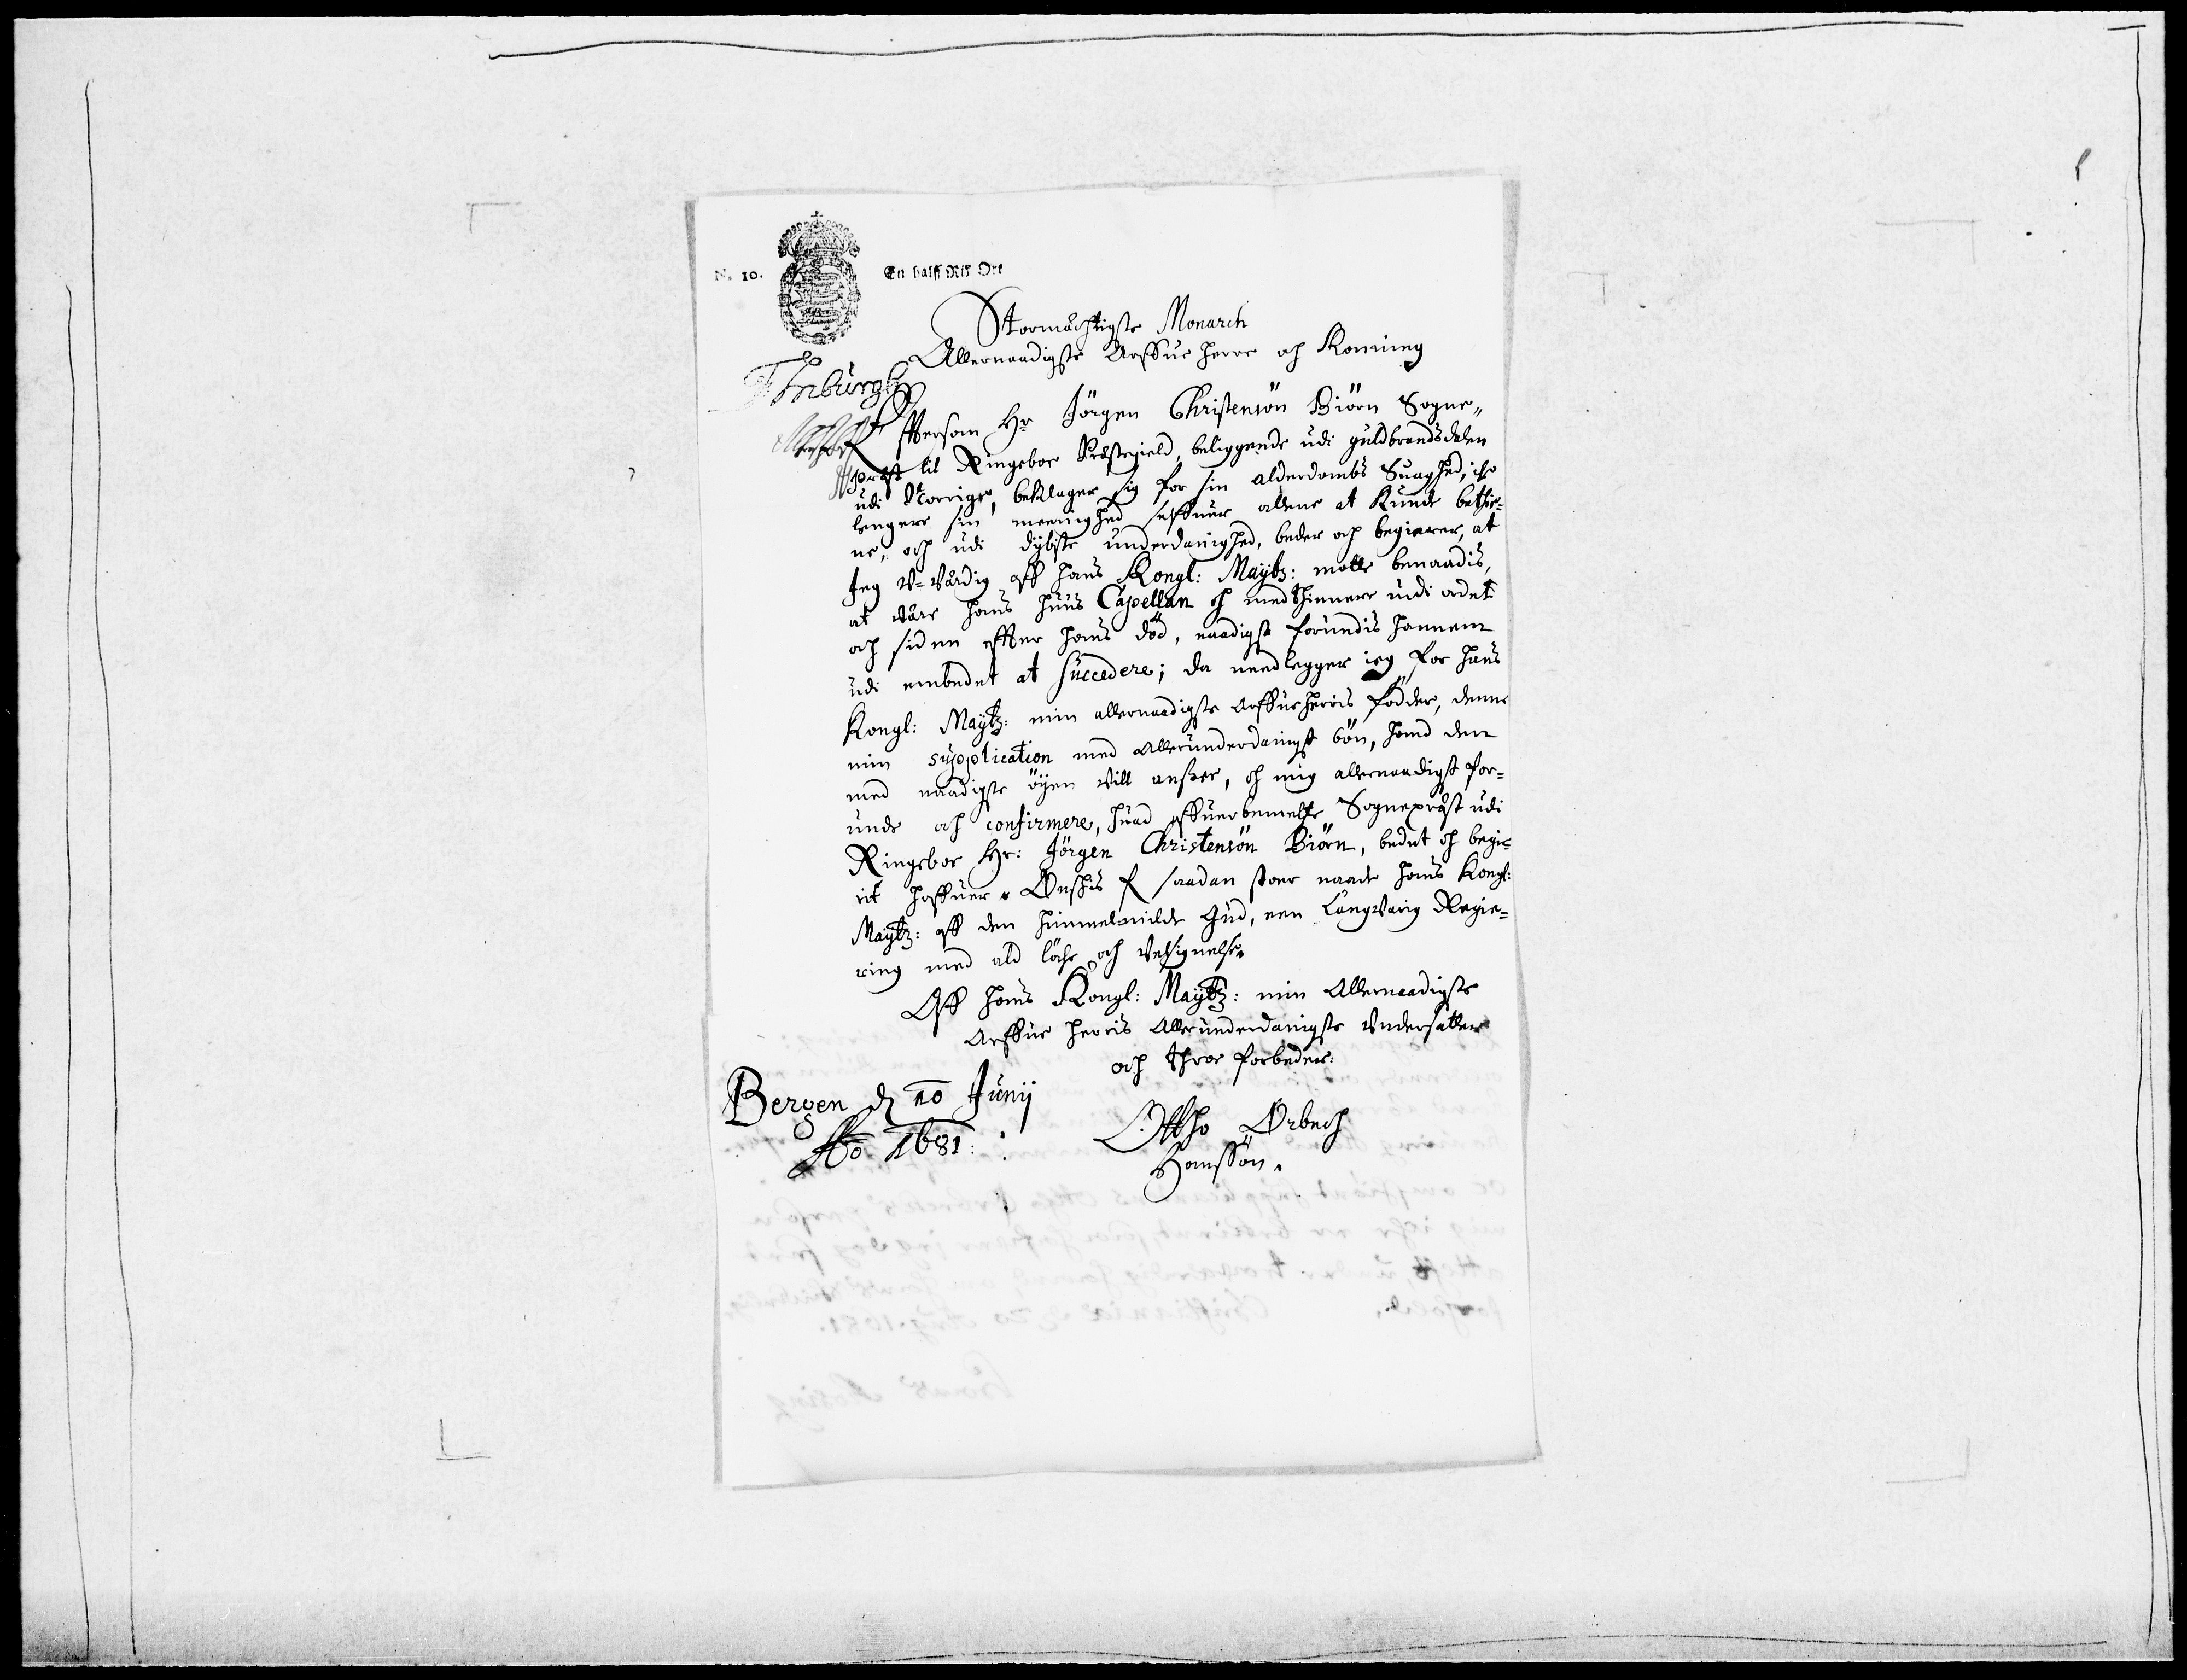 N. 10.
En halff Rix Ort
Stormächtigste Monarch
Allernaadigste Arffue Herre och Konning
Effttersom Hr Jörgen Christensön Biörn Sogne-
præst til Ringeboe Præstegield, beliggende udi guldbrandsdalen
udi Norrige, beklager sig for sin alderdombs Suaghed, iche
lengere sin meenighed effuer allene at kunde bethie-
ne, och udi dybiste underdanighed, beder och begierer, at
Jeg V-värdig aff hans Kongl: Maytz: motte benaadis,
at väre hans Huus Capellan och medthiennere udi ordet
och siden effter hans död, naadigst forundis hannem
udi embedet at succedere; da needlegger ieg for hans
Kongl: Maytz: min allernaadigste Arffueherris födder, denne
min supplication med Allerunderdanigst bön, hand den
med naadigste öyen vill ansee, och mig allernaadigst for-
unde och confirmere, huad offuerbemelte Sognepräst udi
Ringeboe Hr: Jörgen Christensön Biörn, bedet och begie-
rit haffuer. Ønskis for saadan stoer naade hans Kongl:
Maytz: aff den himmelmilde Gud, een Langvarig Regie-
ring med ald løche och Velsignelse.
Aff hans Kongl: Maytz: min Allernaadigste
Arffue Herris Allerunderdanigste Undersatte
och throe forbedere:
Bergen d 10 Junij
Ao 1681:
Ottho Ørbech
Hanssön.